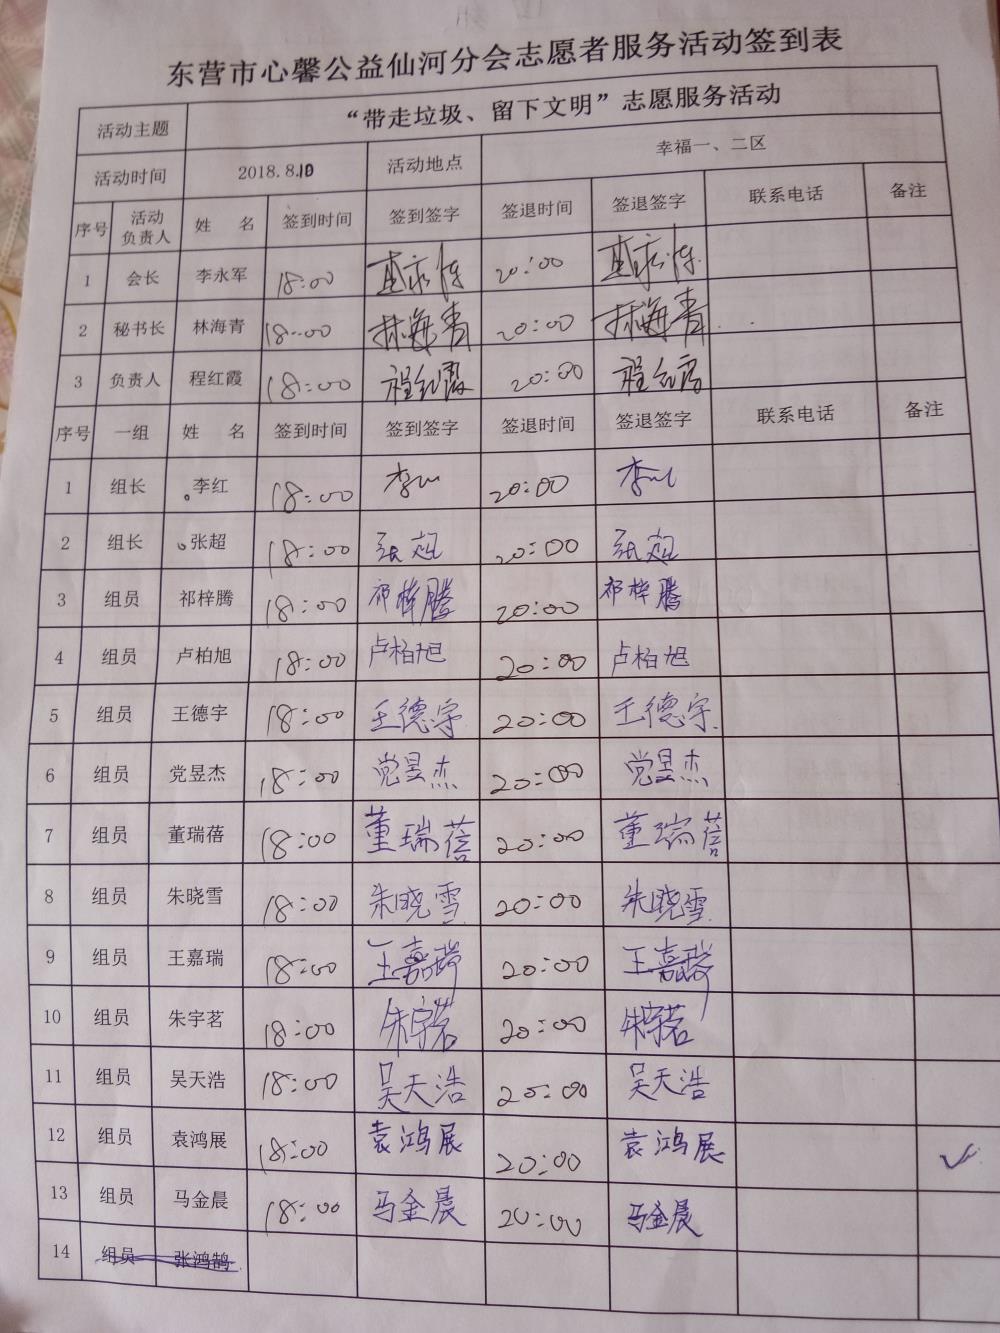 东营市心馨公益仙河分会志愿者服务活动签到表
活动主题 “带走垃圾、留下文明”志愿服务活动
活动时间 2018.8.10 活动地点 幸福一、二区
序号 活动负责人 姓 名 签到时间 签到签字 签退时间 签退签字 联系电话 备注
1 会长 李永军 18:00 20:00
2 秘书长 林海青 18:00 林海青 20:00 林海青
3 负责人 程红霞 18:00 程红霞 20:00 程红霞
序号 一组 姓 名 签到时间 签到签字 签退时间 签退签字 联系电话 备注
1 组长 李红 18:00 李红 20:00 李红
2 组长 张超 18:00 张超 20:00 张超
3 组员 祁梓腾 18:00 祁梓腾 20:00 祁梓腾
4 组员 卢柏旭 18:00 卢柏旭 20:00 卢柏旭
5 组员 王德宇 18:00 王德宇 20:00 王德宇
6 组员 党昱杰 18:00 党昱杰 20:00 党昱杰
7 组员 董瑞蓓 18:00 董瑞蓓 20:00 董瑞蓓
8 组员 朱晓雪 18:00 朱晓雪 20:00 朱晓雪
9 组员 王嘉瑞 18:00 王嘉瑞 20:00 王嘉瑞
10 组员 朱宇茗 18:00 朱宇茗 20:00 朱宇茗
11 组员 吴天浩 18:00 吴天浩 20:00 吴天浩
12 组员 袁鸿展 18:00 袁鸿展 20:00 袁鸿展 ✓
13 组员 马金晨 18:00 马金晨 20:00 马金晨
14 组员 张鸿鹄